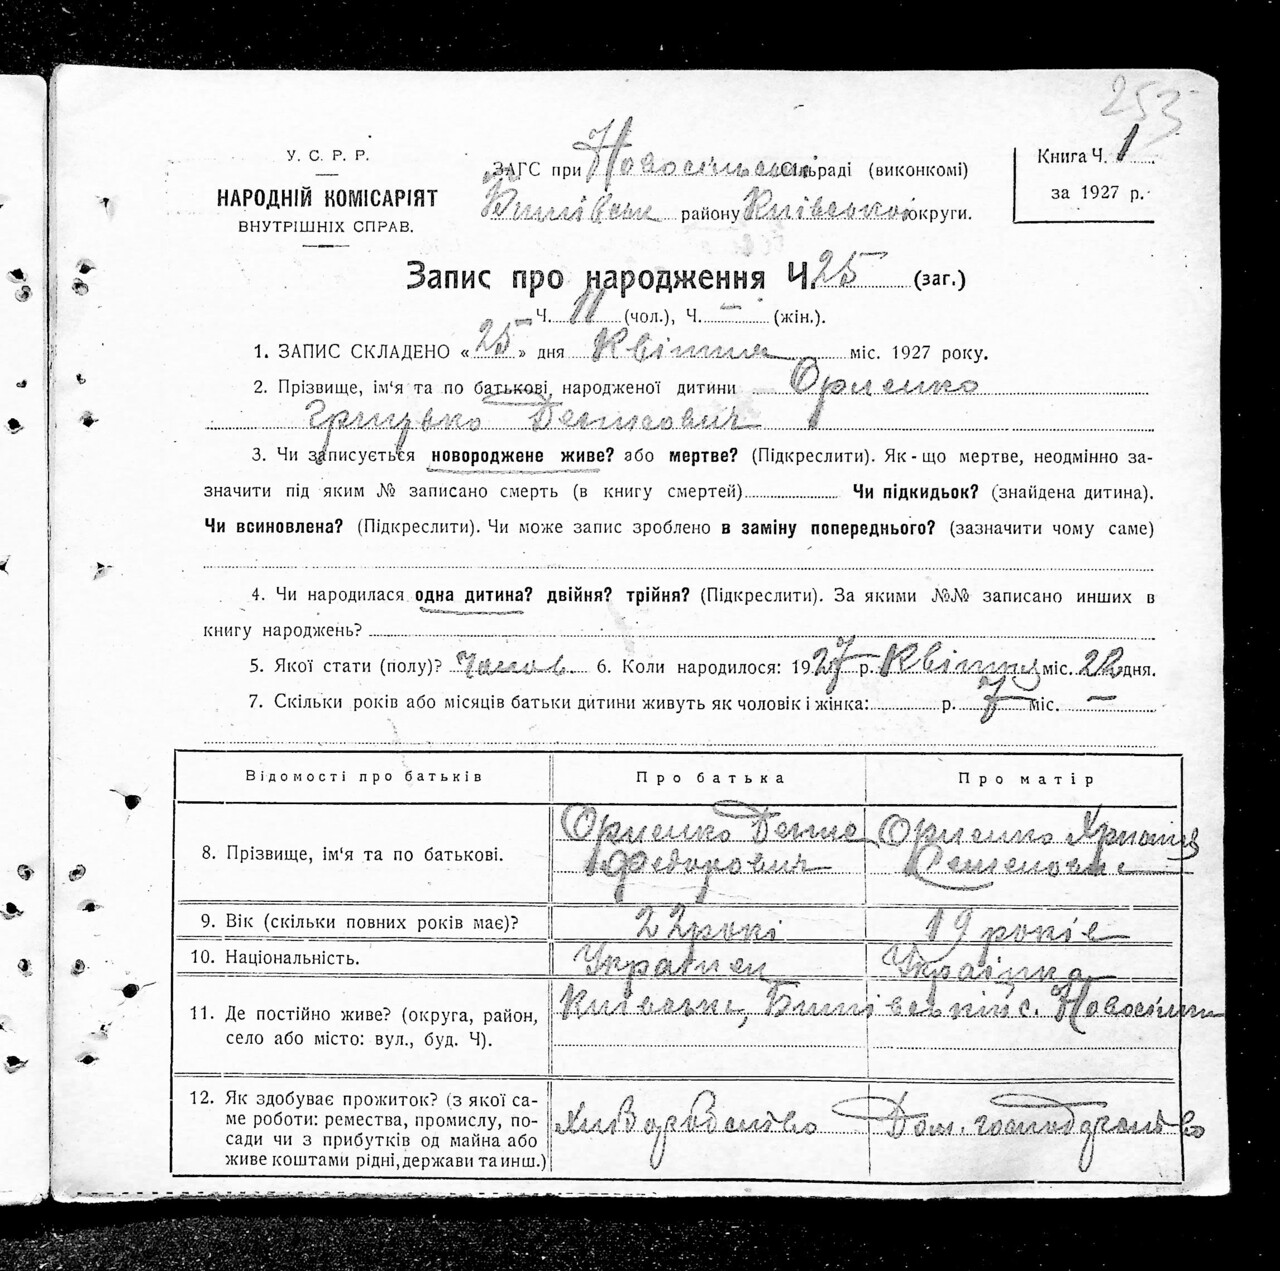 253
У. С. Р. Р.
НАРОДНІЙ КОМІСАРІЯТ
ВНУТРІШНІХ СПРАВ.
ЗАГС при Новосільській сільраді (виконкомі)
району Київської округи.
Книга Ч. 1
за 1927 р.
Запис про народження Ч. 25 (заг.)
Ч. 11 (чол.), Ч. — (жін.).
1. ЗАПИС СКЛАДЕНО « 25 » дня Квітня міс. 1927 року.
2. Прізвище, ім'я та по батькові, народженої дитини Орленко
Грицько Денисович
3. Чи записується новороджене живе? або мертве? (Підкреслити). Як-що мертве, неодмінно за-
значити під яким № записано смерть (в книгу смертей) Чи підкидьок? (знайдена дитина).
Чи всиновлена? (Підкреслити). Чи може запис зроблено в заміну попереднього? (зазначити чому саме)
4. Чи народилася одна дитина? двійня? трійня? (Підкреслити). За якими №№ записано инших в
книгу народжень?
5. Якої стати (полу)? 6. Коли народилося: 1927 р. Квітня міс. дня.
7. Скільки років або місяців батьки дитини живуть як чоловік і жінка: р. 7 міс. —
Відомості про батьків Про батька Про матір
8. Прізвище, ім'я та по батькові. Орленко Денис Федорович Орленко
9. Вік (скільки повних років має)? 22 рокі 19 років
10. Національність. Українец Українка
11. Де постійно живе? (округа, район,
село або місто: вул., буд. Ч). Київська, с. Новосілки
12. Як здобуває прожиток? (з якої са-
ме роботи: ремества, промислу, по-
сади чи з прибутків од майна або
живе коштами рідні, держави та инш.) Хліборобство Дом. господарство